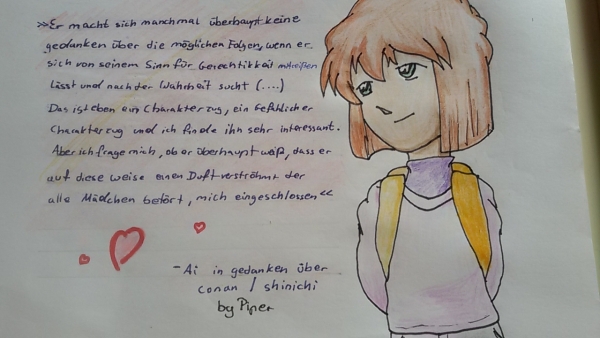 »Er macht sich manchmal überhaupt keine
gedanken über die möglichen Folgen, wenn er
sich von seinem Sinn für Gerechtikkeit mitreißen
lässt und nach der Wahrheit sucht (....)
Das ist eben ein Charakterzug, ein Gefählicher
Charakterzug und ich finde ihn sehr interessant.
Aber ich frage mich, ob er überhaupt weiß, dass er
auf diese Weise einen Duft verströhmt der
alle Mädchen betört, mich eingeschlossen«
- Ai in gedanken über
conan / shinichi
by Piper